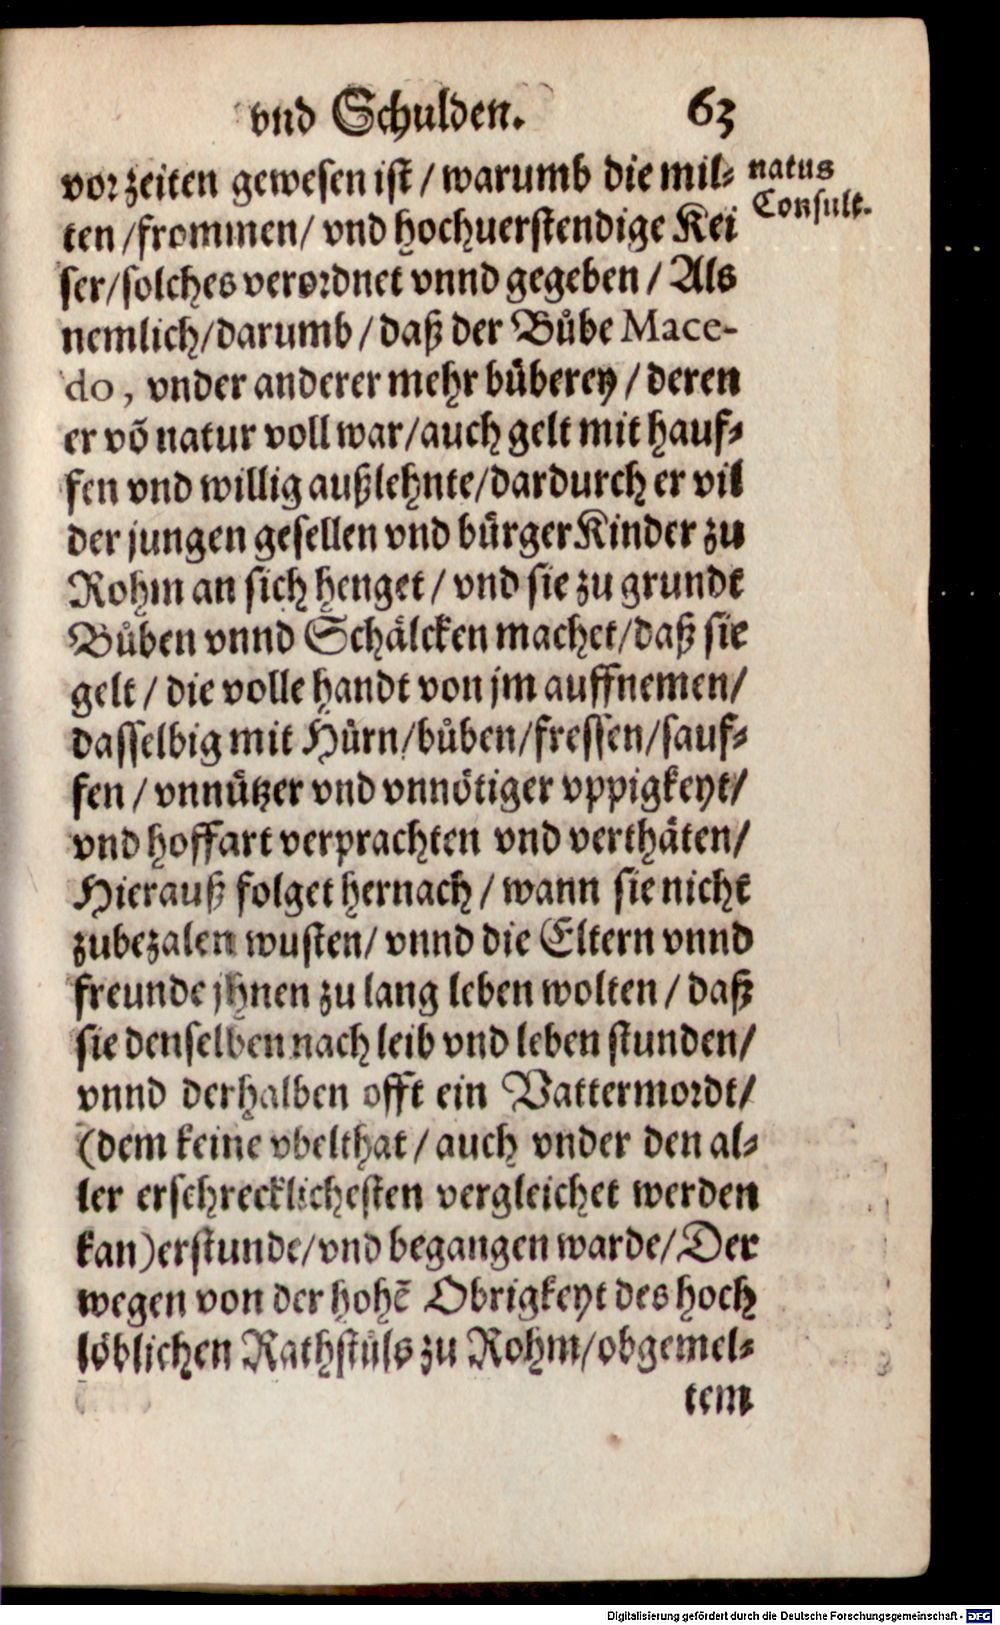 vnd Schulden. 63
vor zeiten gewesen ist / warumb die mil-
natus
Consult.
ten / frommen / vnd hochuerstendige Kei
ser / solches verordnet vnnd gegeben / Als
nemlich / darumb / daß der Bůbe Mace-
do, vnder anderer mehr büberey / deren
er võ natur voll war / auch gelt mit hauf-
fen vnd willig außlehnte / dardurch er vil
der jungen gesellen vnd bürger Kinder zu
Rohm an sich henget / vnd sie zu grundt
Bůben vnnd Schälcken machet / daß sie
gelt / die volle handt von jm auffnemen /
dasselbig mit Hůrn / bůben / fressen / sauf-
fen / vnnützer vnd vnnötiger vppigkeyt /
vnd hoffart verprachten vnd verthäten /
Hierauß folget hernach / wann sie nicht
zubezalen wusten / vnnd die Eltern vnnd
freunde jhnen zu lang leben wolten / daß
sie denselben nach leib vnd leben stunden /
vnnd derhalben offt ein Vattermordt /
(dem keine vbelthat / auch vnder den al-
ler erschrecklichesten vergleichet werden
kan) erstunde / vnd begangen warde / Der
wegen von der hohẽ Obrigkeyt des hoch
löblichen Rathstůls zu Rohm / obgemel-
tem
Digitalisierung gefördert durch die Deutsche Forschungsgemeinschaft - DFG